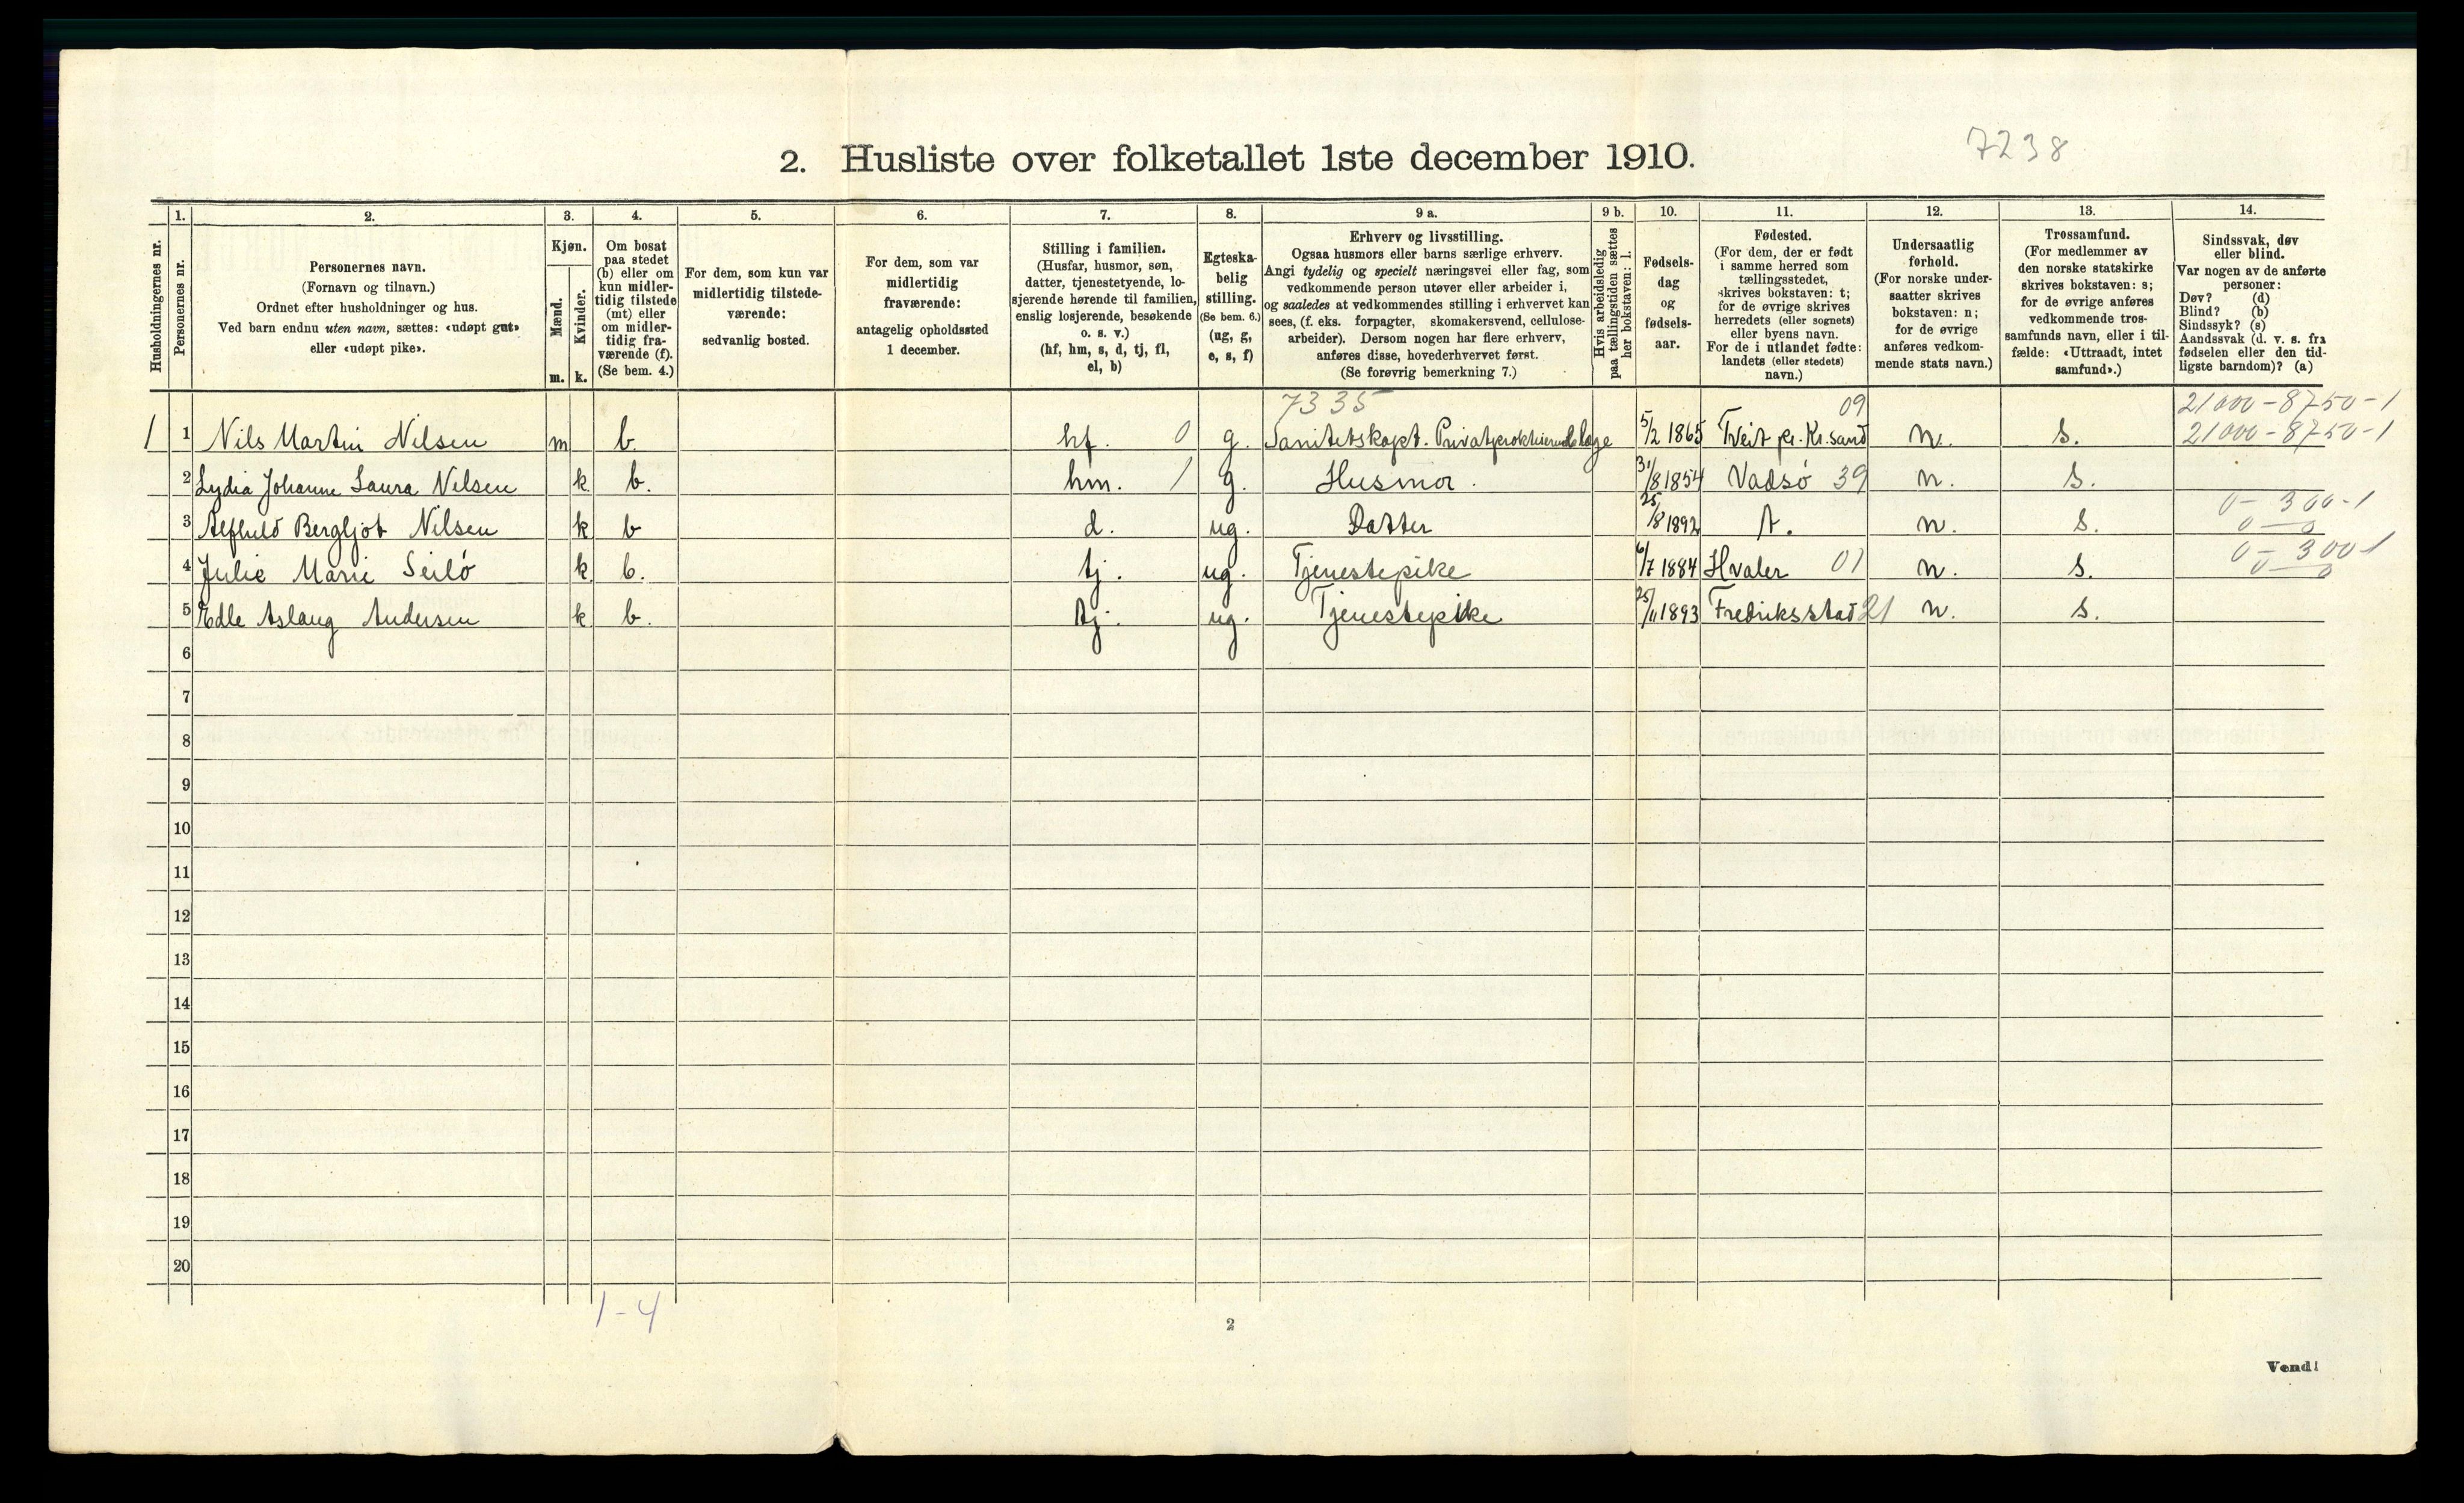 7238
2. Husliste over folketallet 1ste december 1910.
Husholdningernes nr.
1.
Personernes nr.
2.
Personernes navn.
(Fornavn og tilnavn.)
Ordnet efter husholdninger og hus.
Ved barn endnu uten navn, sættes: «udøpt gut»
eller «udøpt pike».
3.
Kjøn.
Mænd.
Kvinder.
m. k.
4.
Om bosat
paa stedet
(b) eller om
kun midler-
tidig tilstede
(mt) eller
om midler-
tidig fra-
værende (f).
(Se bem. 4.)
5.
For dem, som kun var
midlertidig tilstede-
værende:
sedvanlig bosted.
6.
For dem, som var
midlertidig
fraværende:
antagelig opholdssted
1 december.
7.
Stilling i familien.
(Husfar, husmor, søn,
datter, tjenestetyende, lo-
sjerende hørende til familien,
enslig losjerende, besøkende
o. s. v.)
(hf, hm, s, d, tj, fl,
el, b)
8.
Egteska-
belig
stilling.
(Se bem. 6.)
(ug, g,
e, s, f)
9 a.
Erhverv og livsstilling.
Ogsaa husmors eller barns særlige erhverv.
Angi tydelig og specielt næringsvei eller fag, som
vedkommende person utøver eller arbeider i,
og saaledes at vedkommendes stilling i erhvervet kan
sees, (f. eks. forpagter, skomakersvend, cellulose-
arbeider). Dersom nogen har flere erhverv,
anføres disse, hovederhvervet først.
(Se forøvrig bemerkning 7.)
9 b.
Hvis arbeidsledig
paa tællingstiden sættes
her bokstaven: l.
10.
Fødsels-
dag
og
fødsels-
aar.
11.
Fødested.
(For dem, der er født
i samme herred som
tællingsstedet,
skrives bokstaven: t;
for de øvrige skrives
herredets (eller sognets)
eller byens navn.
For de i utlandet fødte:
landets (eller stedets)
navn.)
12.
Undersaatlig
forhold.
(For norske under-
saatter skrives
bokstaven: n;
for de øvrige
anføres vedkom-
mende stats navn.)
13.
Trossamfund.
(For medlemmer av
den norske statskirke
skrives bokstaven: s;
for de øvrige anføres
vedkommende tros-
samfunds navn, eller i til-
fælde: «Uttraadt, intet
samfund».)
14.
Sindssvak, døv
eller blind.
Var nogen av de anførte
personer:
Døv? (d)
Blind? (b)
Sindssyk? (s)
Aandssvak (d. v. s. fra
fødselen eller den tid-
ligste barndom)? (a)
7335 09 21000-8750-1
1 1 Nils Martin Nilsen m b. hf. 0 g. Sanitetskapt. 5/2 1865 Tveit pr. Kr.sand n. s. 21000-8750-1
2 Lydia Johanne Laura Nilsen k b. hm. 1 g. Husmor. 31/8 1854 Vadsö 39 n. s.
0-300-1
3 Alfhild Bergljot Nilsen k b d. ug. Datter 25/8 1892 t. n. s. 0-0
0-300-1
4 Julie Marie Seilö k b. tj. ug. Tjenestepike 6/7 1884 Hvaler 01 n. s. 0-0
5 Edle Aslaug Andersen k b. tj. ug. Tjenestepike 25/11 1893 Fredriksstad 21 n. s.
6
7
8
9
10
11
12
13
14
15
16
17
18
19
20
1-4
2
Vend!